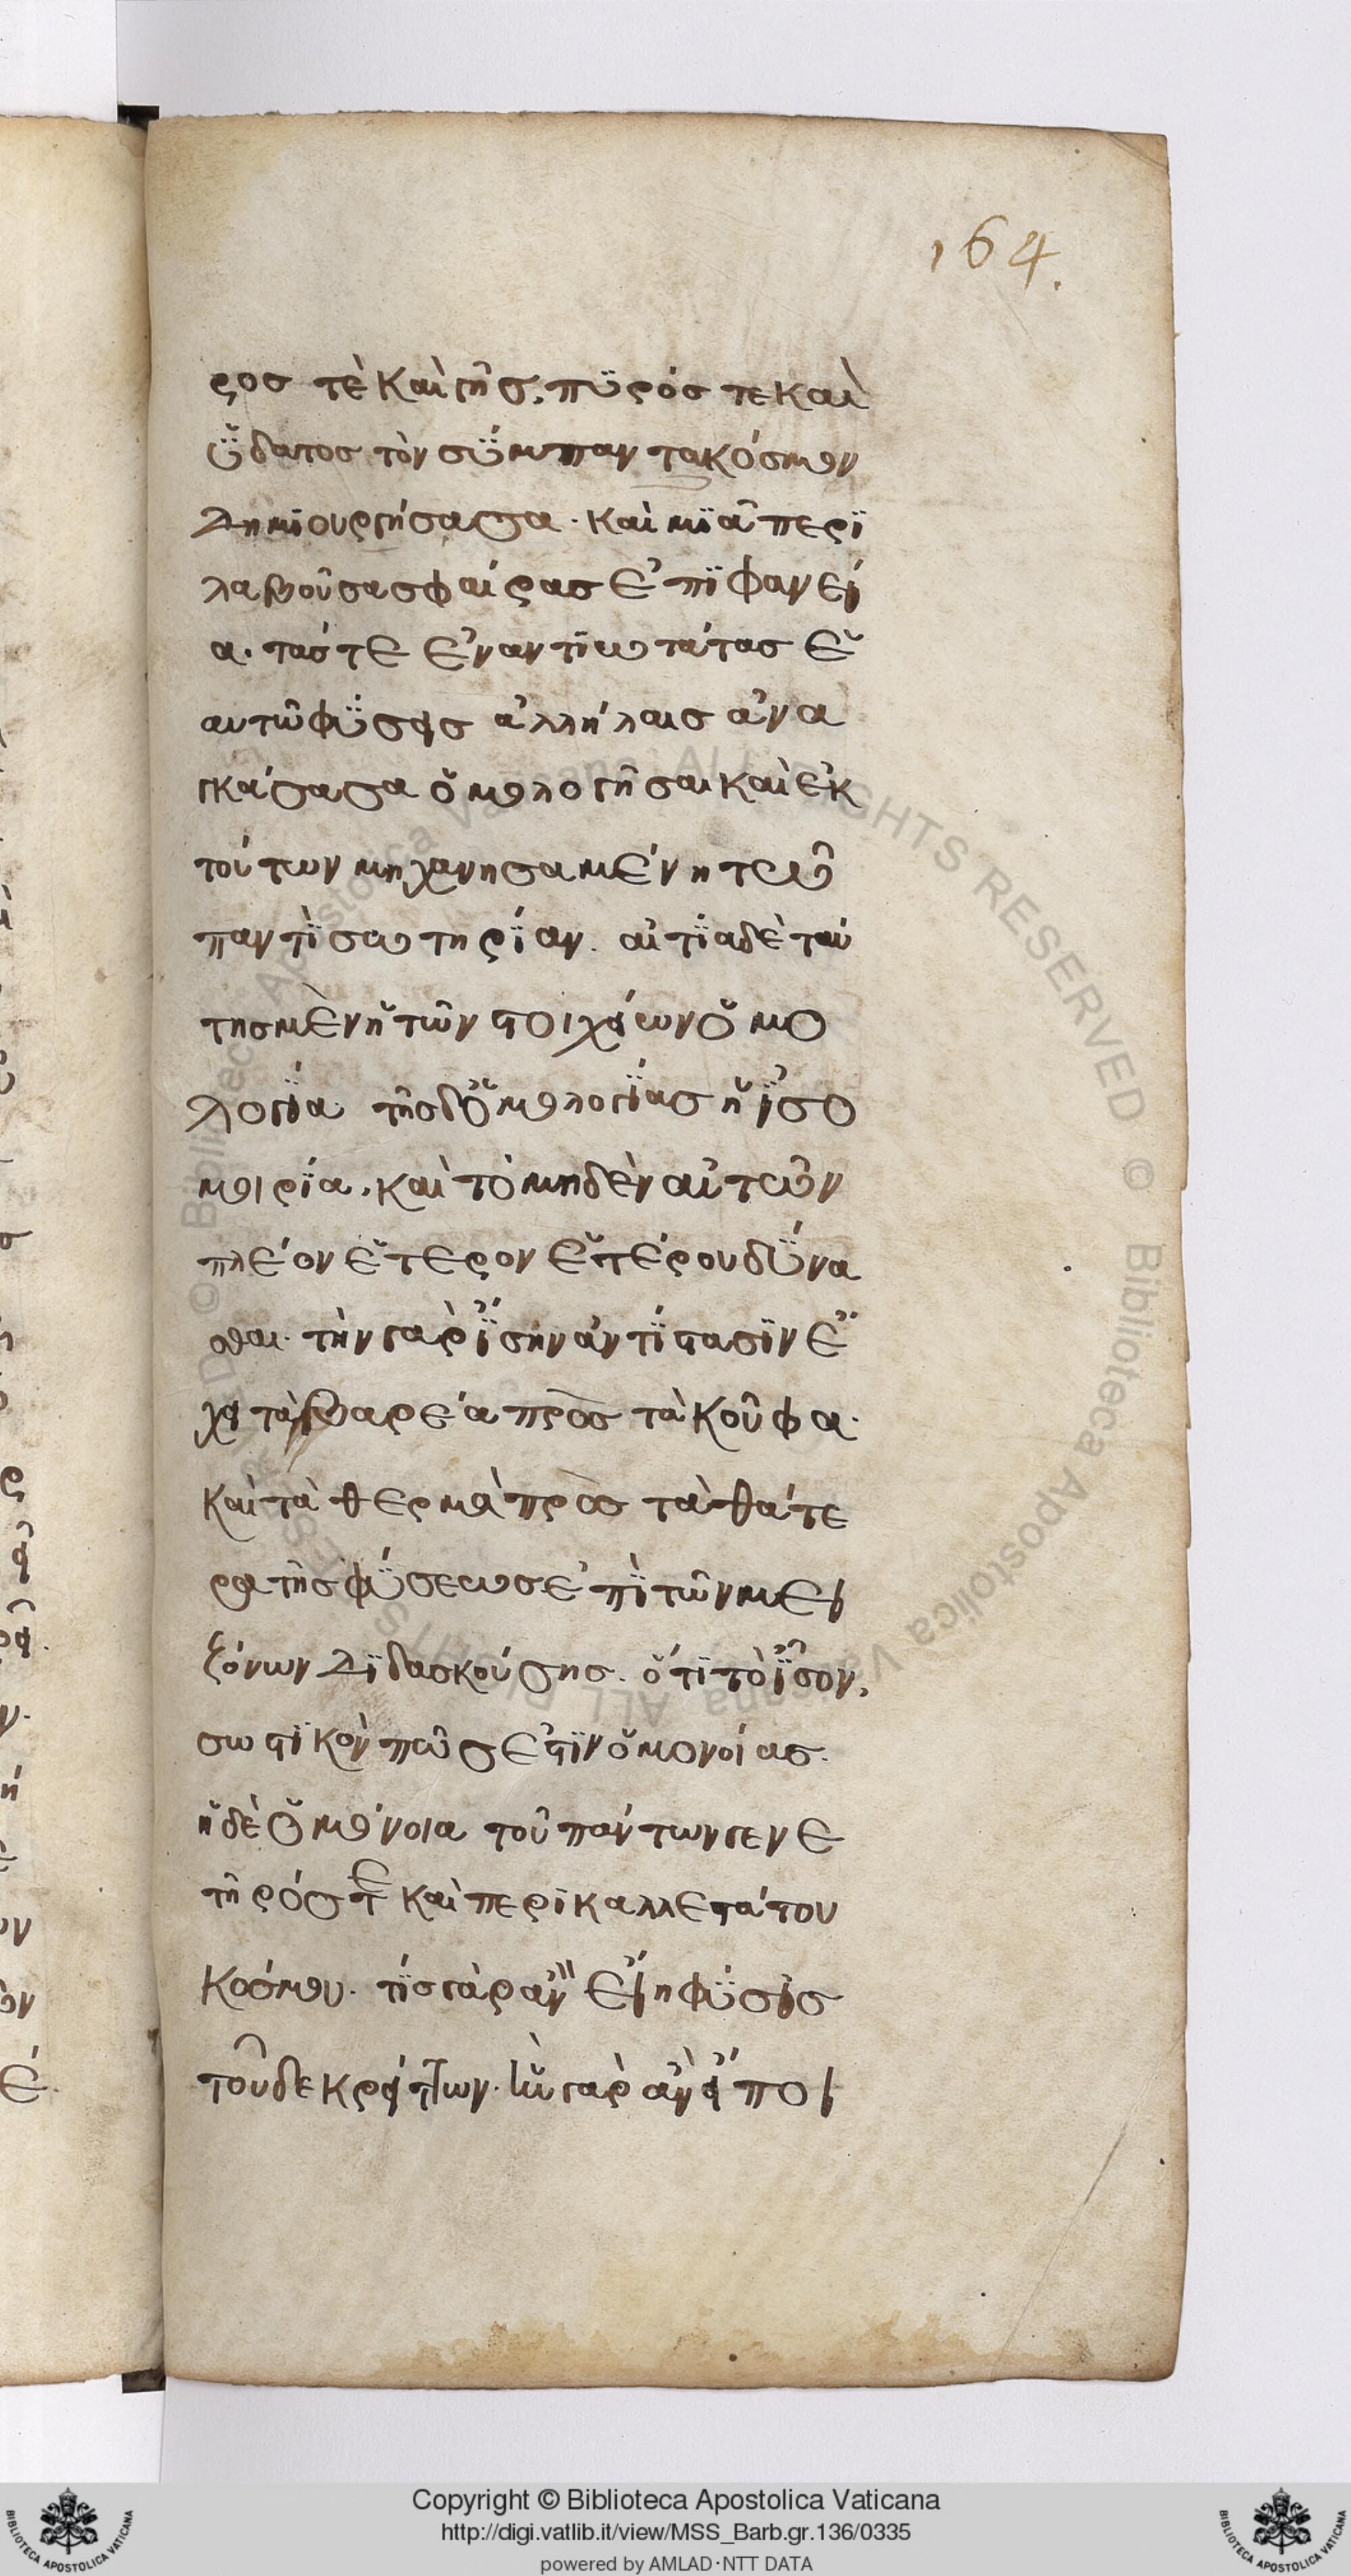 164.
ρος τὲ καὶ γῆς, πϋρός τε καὶ
ὕδατος τὸν σΰμπαντα κόσμον
δημϊουργήσασα· καὶ μϊᾶ περϊ
λαβοῦσα σφαίρας ἐπϊφανεί
α· τάς τε ἐναντϊωτάτας ἑ
αυτῶ φΰσεις ἀλλήλαις ἀνα
γκάσασα ὁμολογῆσαι καὶ ἐκ
τούτων μηχανησαμένη τῶ
παντὶ σωτηρΐαν. αἰτΐα δὲ ταύ
της μὲν ἡ τῶν στοιχείων ὁμο
λογΐα· τῆς δὁμολογΐας ἡ ἰσο
μοιρΐα, καὶ τὸ μηδὲν αὐτῶν
πλέον ἕτερον ἑτέρου δΰνα
σθαι· τὴν γὰρ ἴσην ἀντϊστασϊν ἔ
χει τὰ βαρέα πρὸς τὰ κοῦφα·
καὶ τὰ θερμὰ πρὸς τὰ θάτε
ρα τῆς φΰσεως ἐπὶ τῶν μει
ζόνων δϊδασκούσης· ὅτϊ τὸ ἶσον,
σωστϊκὸν πῶς ἐστϊν ὁμονοίας·
ἡ δὲ ὁμόνοια τοῦ πάντων γενε
τῆρός τε καὶ περϊκαλλεστάτου
κόσμου· τΐς γὰρ ἂν εἴη φΰσις
τοῦδε κρείττων· ἣν γὰρ ἂν εἴποι
Copyright © Biblioteca Apostolica Vaticana
http://digi.vatlib.it/view/MSS_Barb.gr.136/0335
powered by AMLAD·NTT DATA